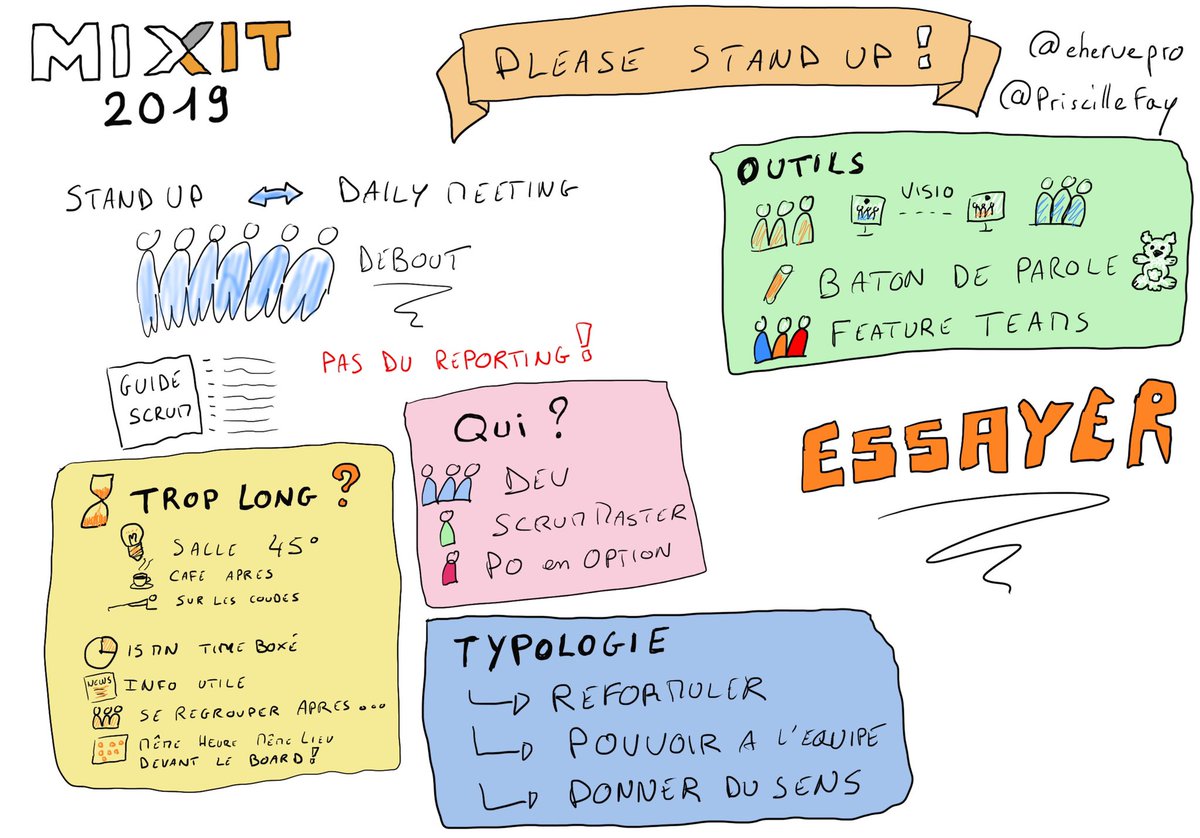 MIXIT
2019
PLEASE STAND UP !
@eherve pro
@PriscilleFay
STAND UP DAILY MEETING
DEBOUT
PAS DU REPORTING !
GUIDE
SCRUM
OUTILS
VISIO
BATON DE PAROLE
FEATURE TEAMS
ESSAYER
TROP LONG ?
SALLE 45°
CAFE APRES
SUR LES COUDES
15 MN TIME BOXÉ
NEWS
INFO UTILE
SE REGROUPER APRES...
MÊME HEURE MÊME LIEU
DEVANT LE BOARD !
Qui ?
DEV
SCRUM MASTER
PO en OPTION
TYPOLOGIE
REFORMULER
POUVOIR A L'EQUIPE
DONNER DU SENS